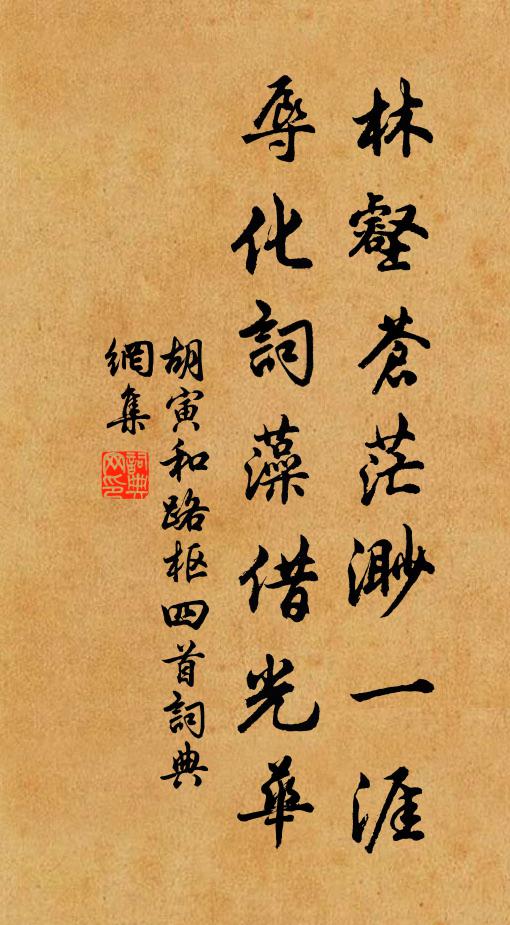 林壑蒼茫渺一涯
辱化詞藻借光華
胡寅和路枢四首詞典
網集
詞典网印